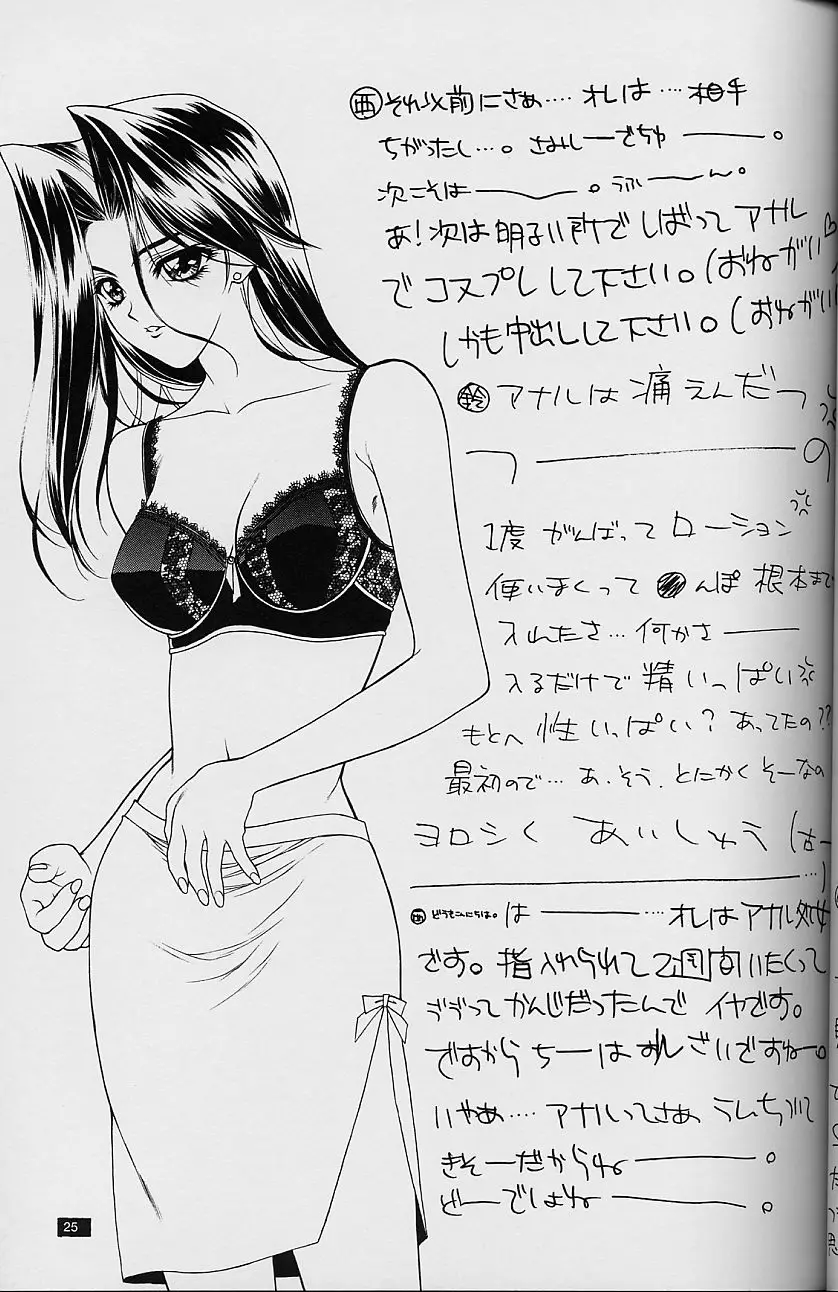 西 それ以前にさぁ‥‥ オレは‥‥ 相手
ちがったし…。さみしーでちゅ ――。
次こそは――。うふーーん。
あ！次は明るい所でしばってアナル
でコスプレして下さい。(おねがい♡
しかも中出しして下さい。(おねがい
鈴 アナルは痛えんだっ
つ――――の
1度 がんばって ローション
使いまくって ●んぽ 根本まで
入れたさ… 何かさ――
入るだけで精いっぱい
もとへ 性いっぱい？ あってたの??
最初ので… あ、そう、とにかくそーなの
ヨロシく あいしゅう (古ー
…)
西 どうもこんにちは。は――‥‥オレはアナル処女
です。指入れられて2週間いたくって
って かんじだったんで イヤです。
ですから ちーは ですねー。
いやあ‥‥ アナルってさあ うんちづいて
きそーだからね――。
どーでしょね――。
25